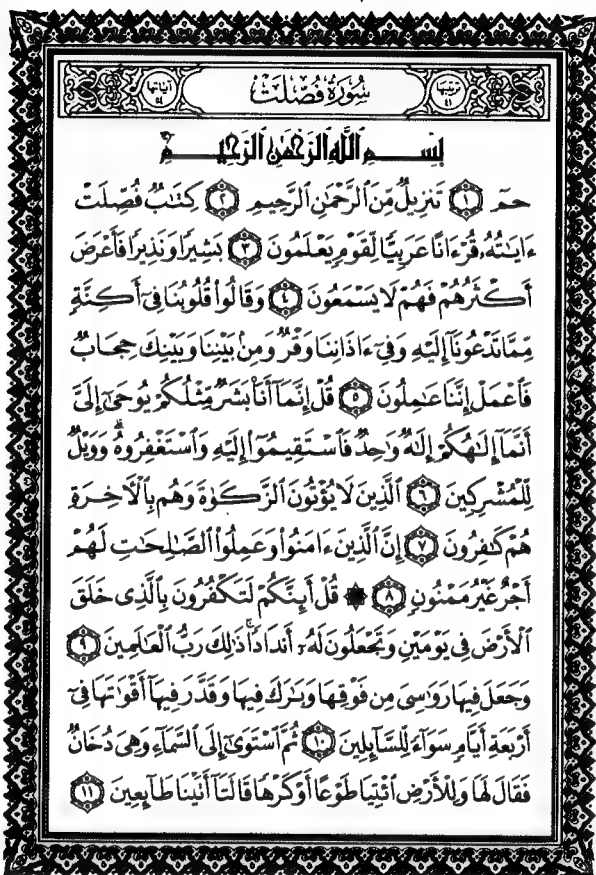 ترتيبها ٤١
سُورَةُ فُصِّلَتْ
آياتها ٥٤
بِسْمِ ٱللَّهِ ٱلرَّحْمَٰنِ ٱلرَّحِيمِ
حمٓ ۝١ تَنزِيلٌ مِّنَ ٱلرَّحْمَٰنِ ٱلرَّحِيمِ ۝٢ كِتَٰبٌ فُصِّلَتْ
ءَايَٰتُهُۥ قُرْءَانًا عَرَبِيًّا لِّقَوْمٍ يَعْلَمُونَ ۝٣ بَشِيرًا وَنَذِيرًا فَأَعْرَضَ
أَكْثَرُهُمْ فَهُمْ لَا يَسْمَعُونَ ۝٤ وَقَالُوا۟ قُلُوبُنَا فِىٓ أَكِنَّةٍ
مِّمَّا تَدْعُونَآ إِلَيْهِ وَفِىٓ ءَاذَانِنَا وَقْرٌ وَمِنۢ بَيْنِنَا وَبَيْنِكَ حِجَابٌ
فَٱعْمَلْ إِنَّنَا عَٰمِلُونَ ۝٥ قُلْ إِنَّمَآ أَنَا۠ بَشَرٌ مِّثْلُكُمْ يُوحَىٰٓ إِلَىَّ
أَنَّمَآ إِلَٰهُكُمْ إِلَٰهٌ وَٰحِدٌ فَٱسْتَقِيمُوٓا۟ إِلَيْهِ وَٱسْتَغْفِرُوهُ ۗ وَوَيْلٌ
لِّلْمُشْرِكِينَ ۝٦ ٱلَّذِينَ لَا يُؤْتُونَ ٱلزَّكَوٰةَ وَهُم بِٱلْأَخِرَةِ
هُمْ كَٰفِرُونَ ۝٧ إِنَّ ٱلَّذِينَ ءَامَنُوا۟ وَعَمِلُوا۟ ٱلصَّٰلِحَٰتِ لَهُمْ
أَجْرٌ غَيْرُ مَمْنُونٍ ۝٨ ۞ قُلْ أَئِنَّكُمْ لَتَكْفُرُونَ بِٱلَّذِى خَلَقَ
ٱلْأَرْضَ فِى يَوْمَيْنِ وَتَجْعَلُونَ لَهُۥٓ أَندَادًا ۚ ذَٰلِكَ رَبُّ ٱلْعَٰلَمِينَ ۝٩
وَجَعَلَ فِيهَا رَوَٰسِىَ مِن فَوْقِهَا وَبَٰرَكَ فِيهَا وَقَدَّرَ فِيهَآ أَقْوَٰتَهَا فِىٓ
أَرْبَعَةِ أَيَّامٍ سَوَآءً لِّلسَّآئِلِينَ ۝١٠ ثُمَّ ٱسْتَوَىٰٓ إِلَى ٱلسَّمَآءِ وَهِىَ دُخَانٌ
فَقَالَ لَهَا وَلِلْأَرْضِ ٱئْتِيَا طَوْعًا أَوْ كَرْهًا قَالَتَآ أَتَيْنَا طَآئِعِينَ ۝١١